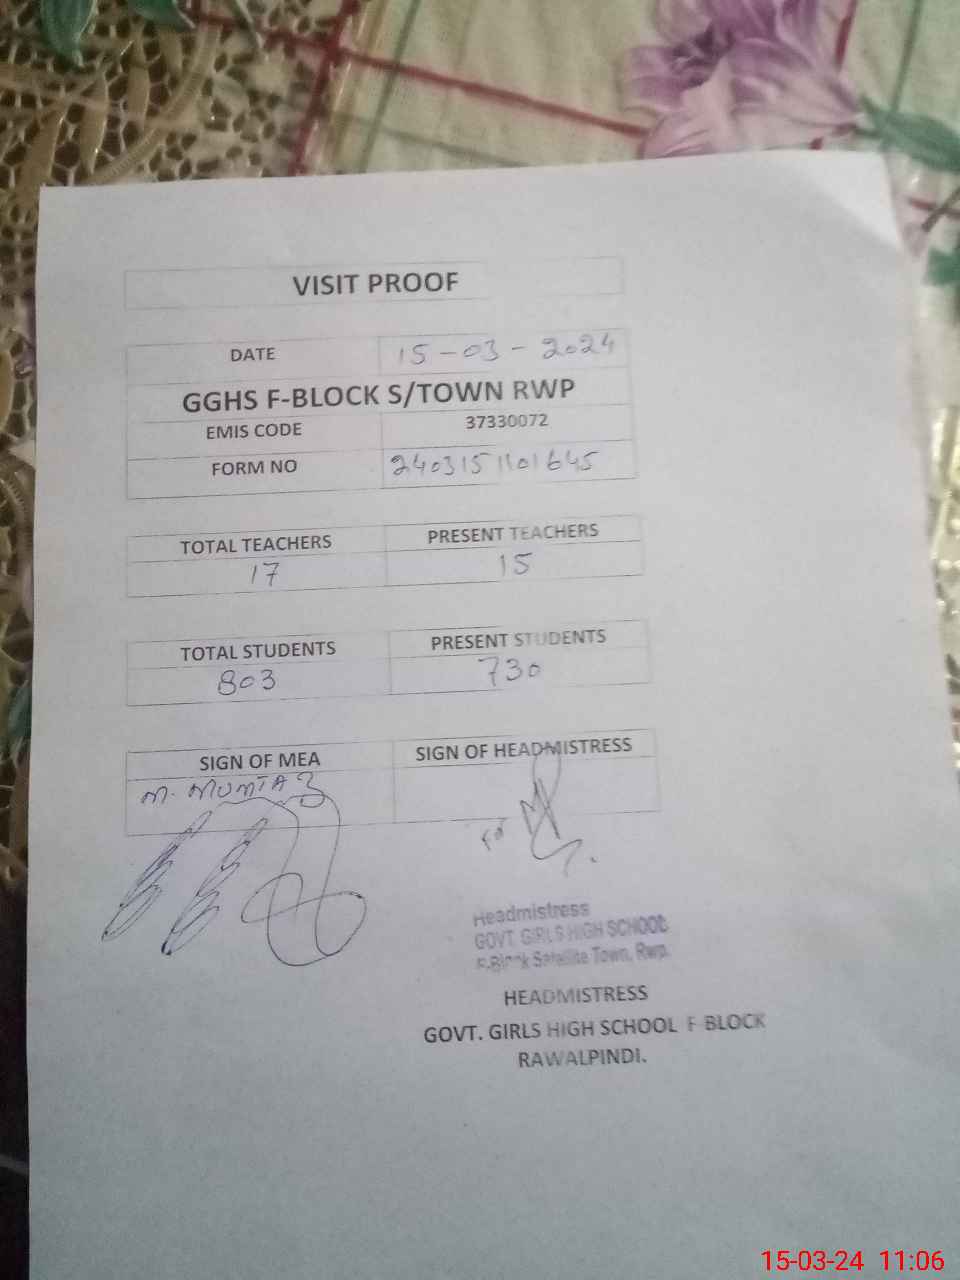 VISIT PROOF
DATE 15-03-2024
GGHS F-BLOCK S/TOWN RWP
EMIS CODE 37330072
FORM NO 2403151101645
TOTAL TEACHERS PRESENT TEACHERS
17 15
TOTAL STUDENTS PRESENT STUDENTS
803 730
SIGN OF MEA SIGN OF HEADMISTRESS
M. MUMTAZ
Headmistress
GOVT. GIRLS HIGH SCHOOL
F-Block Satellite Town, Rwp.
HEADMISTRESS
GOVT. GIRLS HIGH SCHOOL F BLOCK
RAWALPINDI.
15-03-24 11:06